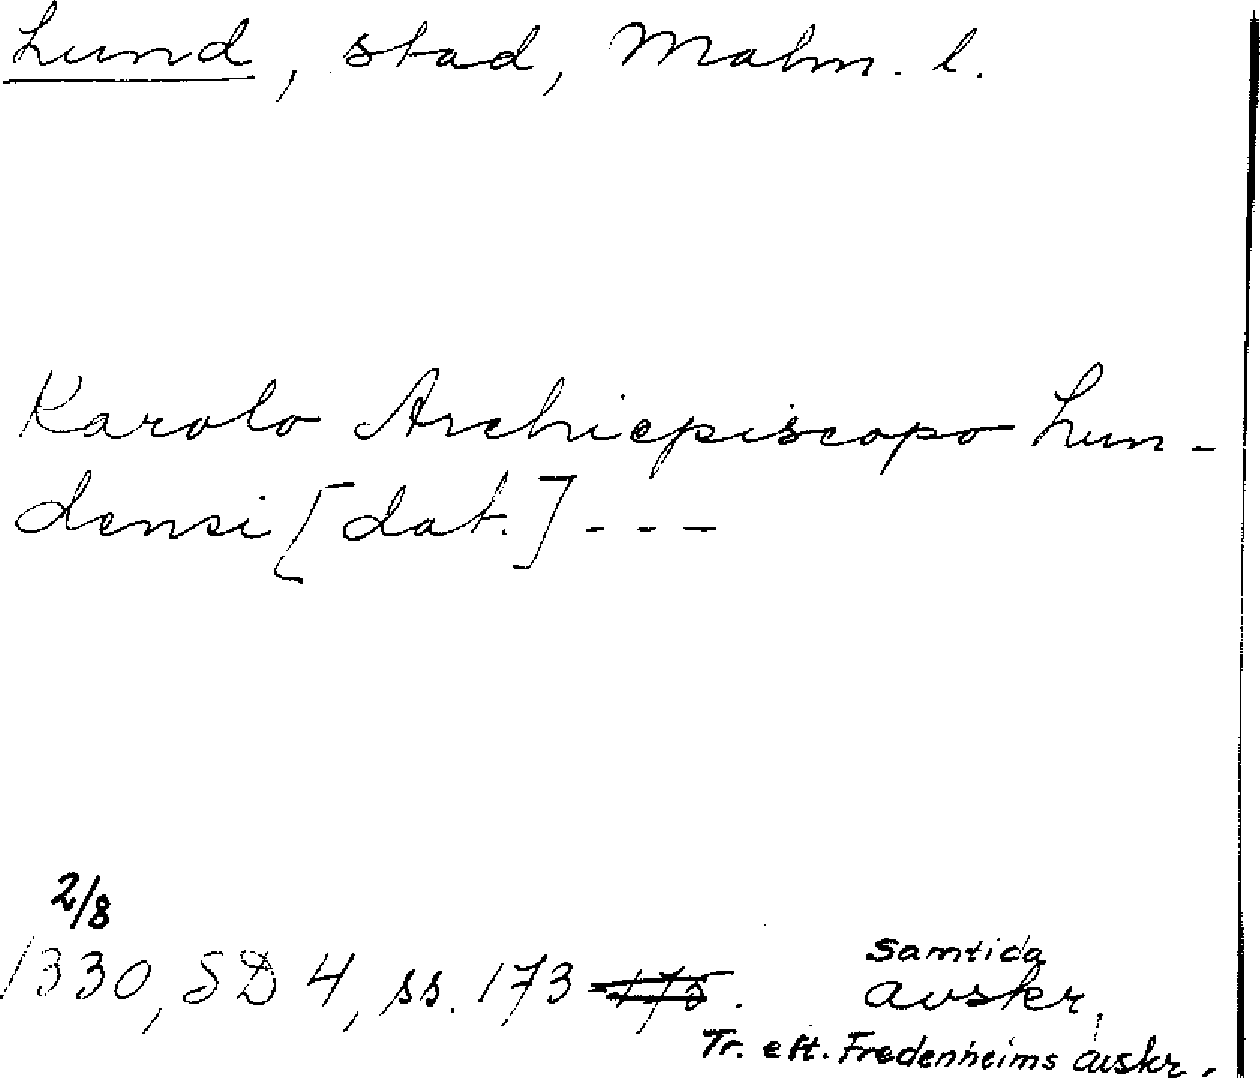 Lund, stad, Malm. l.
Karolo Archiepiscopo Lun-
densi [dat.] - - -
2/8
1330, SD 4, ss. 173 .
Samtida
avskr.
Tr. eft. Fredenheims avskr.